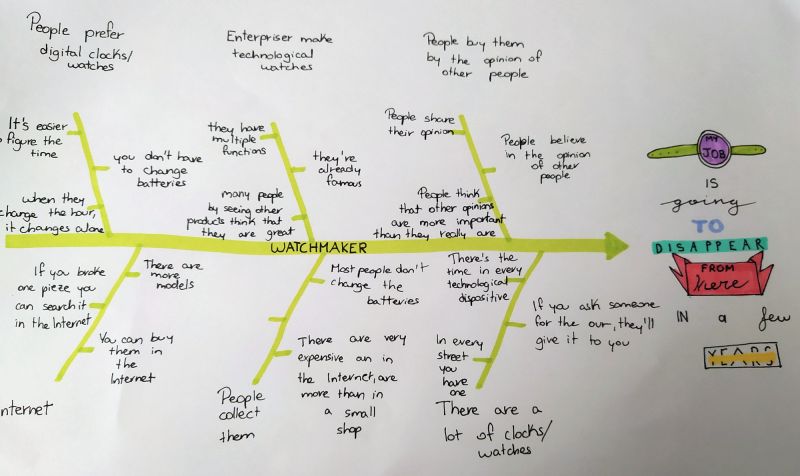 People prefer
digital clocks/
watches
Enterpriser make
technological
watches
People buy them
by the opinion of
other people
It's easier
figure the
time
you don't have
to change
batteries
when they
change the hour,
it changes alone
they have
multiple
functions
they're
already
famous
many people
by seeing other
products think that
they are great
People share
their opinion
People believe
in the opinion
of other
people
People think
that other opinions
are more important
than they really are
WATCHMAKER
If you broke
one pieze you
can search it
in the Internet
There are
more
models
You can buy
them in
the
Internet
nternet
Most people don't
change the
batteries
There are very
expensive an in
the Internet, are
more than in
a small
shop
People
collect
them
There's the
time in every
technological
dispositive
If you ask someone
for the our, they'll
give it to you
In every
street
you
have
one
There are a
lot of clocks/
watches
MY
JOB
IS
going
TO
DISAPPEAR
FROM
here
IN a few
YEARS